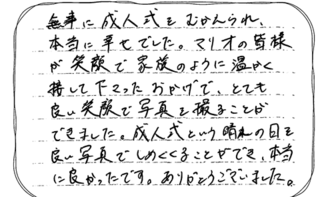 無事に成人式をむかえられ、
本当に幸せでした。マリオの皆様
が笑顔で家族のように温かく
接して下さったおかげで、とても
良い笑顔で写真を撮ることが
できました。成人式という晴れの日を
良い写真でしめくくることができ、本当
に良かったです。ありがとうございました。